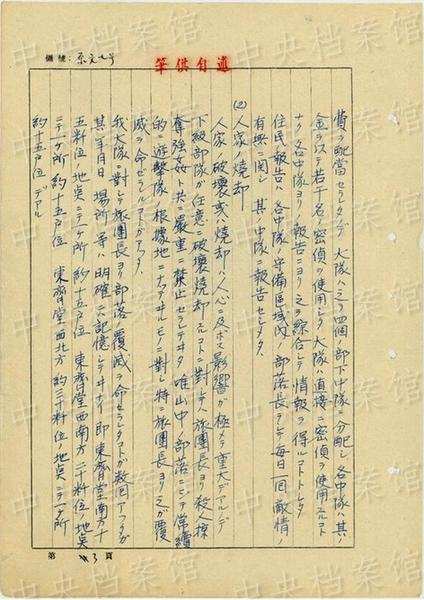 編號:系文九号
筆供自述
費ヲ配當セラレタノデ大隊ハ之ヲ四個ノ部下中隊ニ分配シ各中隊ハ其ノ
金ヲ以テ若干名ノ密偵ヲ使用シタ大隊ハ直接ニ密偵ヲ使用スルコト
ナク各中隊ヨリノ報告ニヨリ之ヲ綜合シテ情報ヲ得ルコトトシタ
住民ノ報告ハ各中隊ノ守備区域内ノ部落長ヲシテ毎日一回敵情ノ
有無ニ関シ其ノ中隊ニ報告セシメタ
(2)人家ノ焼却
人家ノ破壊或ハ焼却ハ人心ニ及ボス影響ガ極メテ重大デアルノデ
下級部隊ガ任意ニ破壊焼却スルコトニ対シテハ旅團長ヨリ殺人掠
奪強姦ト共ニ嚴重ニ禁止セラレテヰタ唯山中ノ部落ニシテ常續
的ノ遊撃隊ノ根據地ニナッテヰルモノニ対シ特ニ旅團長ヨリ之ガ覆
滅ヲ命ゼラルルコトガアッタ
我大隊ニ対シテ旅團長ヨリ部落ノ覆滅ヲ命セラレタコトガ数回アッタガ
其ノ年月日場所等ハ明確ニハ記憶シテヰナイ即東齊堂南方十
五粁位ノ地点ニテ一ケ所約十五戸位東齊堂西南方二十粁位ノ地点
ニテ一ケ所約十五戸位東齊堂西北方約三粁位ノ地点ニテ一ケ所
約十五戸位デアル
第3頁
中央档案馆